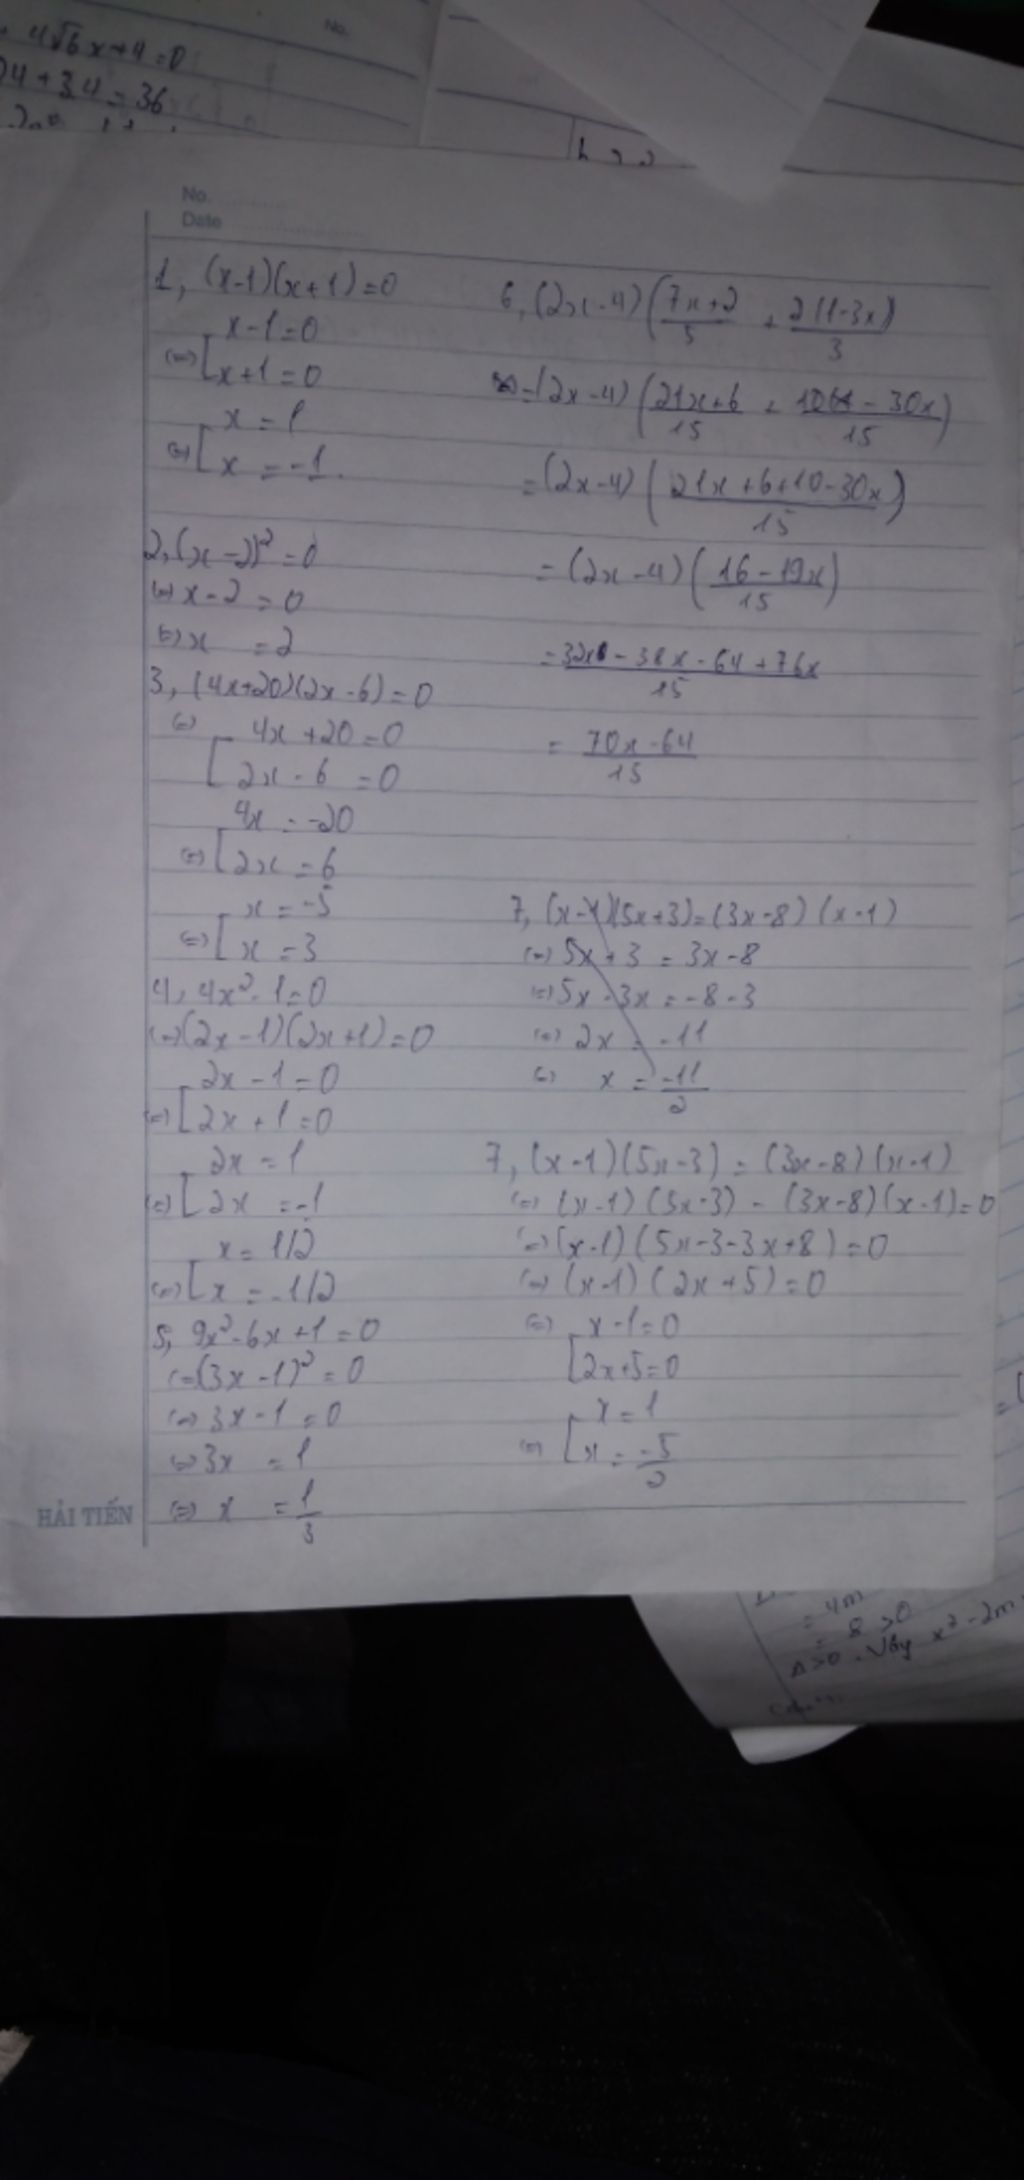 4√6x+4=0
04+3.4=36
No.
No.
Date
1, (x-1)(x+1)=0
x-1=0
(=) [ x+1=0
x=1
(=) [ x=-1.
2, (x-2)²=0
(=) x-2=0
(=) x =2
3, (4x+20)(2x-6)=0
(=)
4x+20=0
[ 2x-6=0
4x=-20
(=) [ 2x=6
x=-5
(=) [ x=3
4, 4x²-1=0
(=) (2x-1)(2x+1)=0
2x-1=0
(=) [ 2x+1=0
2x=1
(=) [ 2x=-1
x=1/2
(=) [ x=-1/2
5, 9x²-6x+1=0
(=) (3x-1)²=0
(=) 3x-1=0
(=) 3x =1
(=) x = 1/3
HẢI TIẾN
6, (2x-4)( (7x+2)/5 + 2(1-3x)/3 )
= (2x-4)( (21x+6)/15 + (10-30x)/15 )
= (2x-4)( (21x+6+10-30x)/15 )
= (2x-4)( (16-19x)/15 )
= (32x-38x-64+76x)/15
= (70x-64)/15
7, (x-1)(5x+3)=(3x-8)(x-1)
(=) 5x+3=3x-8
(=) 5x-3x=-8-3
(=) 2x=-11
(=) x=-11/2
7, (x-1)(5x-3)=(3x-8)(x-1)
(=) (x-1)(5x-3)-(3x-8)(x-1)=0
(=) (x-1)(5x-3-3x+8)=0
(=) (x-1)(2x+5)=0
(=) x-1=0
[ 2x+5=0
x=1
(=) [ x=-5/2
= 4m
= 8 >0
Δ>0. Vậy x²-2m